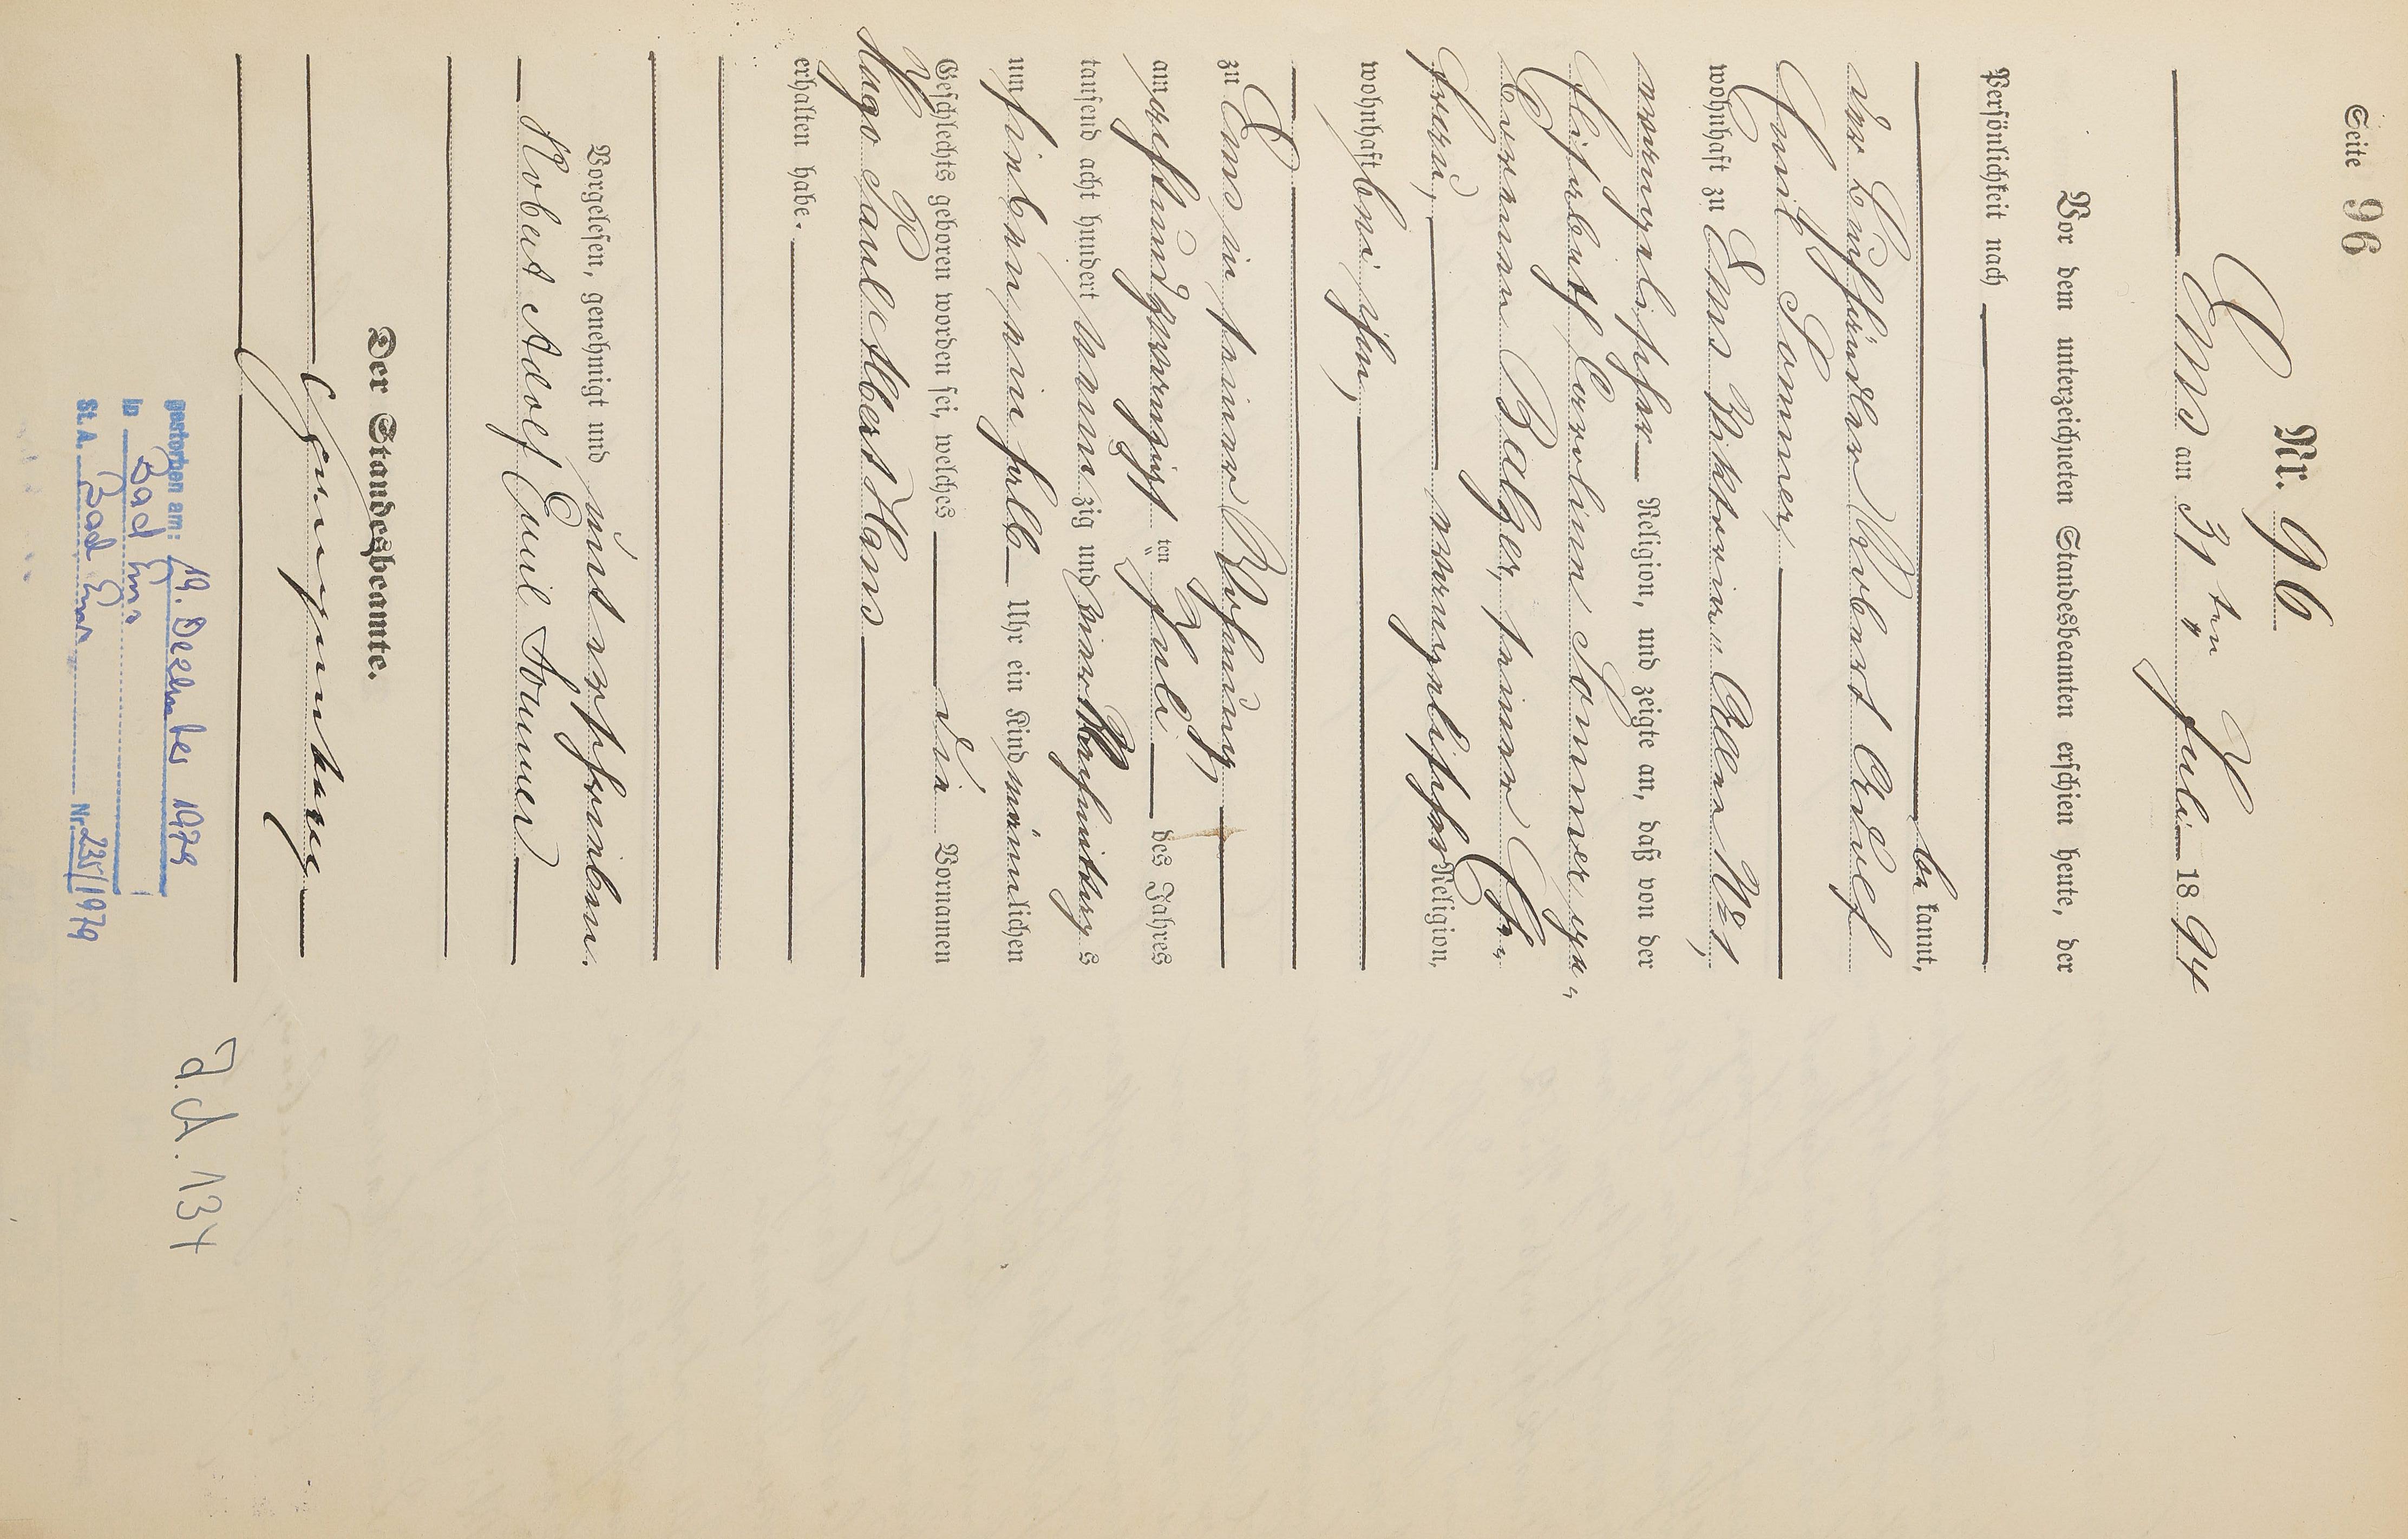 Seite 96
Nr. 96
Ems am 31 ten Juli 1894
Vor dem unterzeichneten Standesbeamten erschien heute, der
Persönlichkeit nach
bekannt,
der Buchhändler Robert Adolf
Emil Sommer,
wohnhaft zu Ems Viktoria Allee No 1,
evangelischer Religion, und zeigte an, daß von der
Elisabeth Caroline Sommer ge-
borenen Balzer, seiner Ehe-
frau, evangelischer Religion,
wohnhaft bei ihm,
zu Ems in seiner Wohnung
am achtundzwanzigsten Juli des Jahres
tausend acht hundert neunzig und vier Vormittags
um sieben ein halb Uhr ein Kind männlichen
Geschlechts geboren worden sei, welches die Vornamen
Hugo Paul Albert Hans
erhalten habe.
Vorgelesen, genehmigt und unterschrieben.
Robert Adolf Emil Sommer
Der Standesbeamte.
gestorben am: 19. Dezember 1979
in Bad Ems
St. A. Bad Ems Nr. 235/1979
a. A. 134